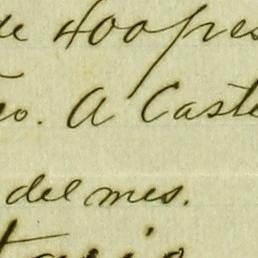 de Hoopes
eo. A Caste
del mes.
tario